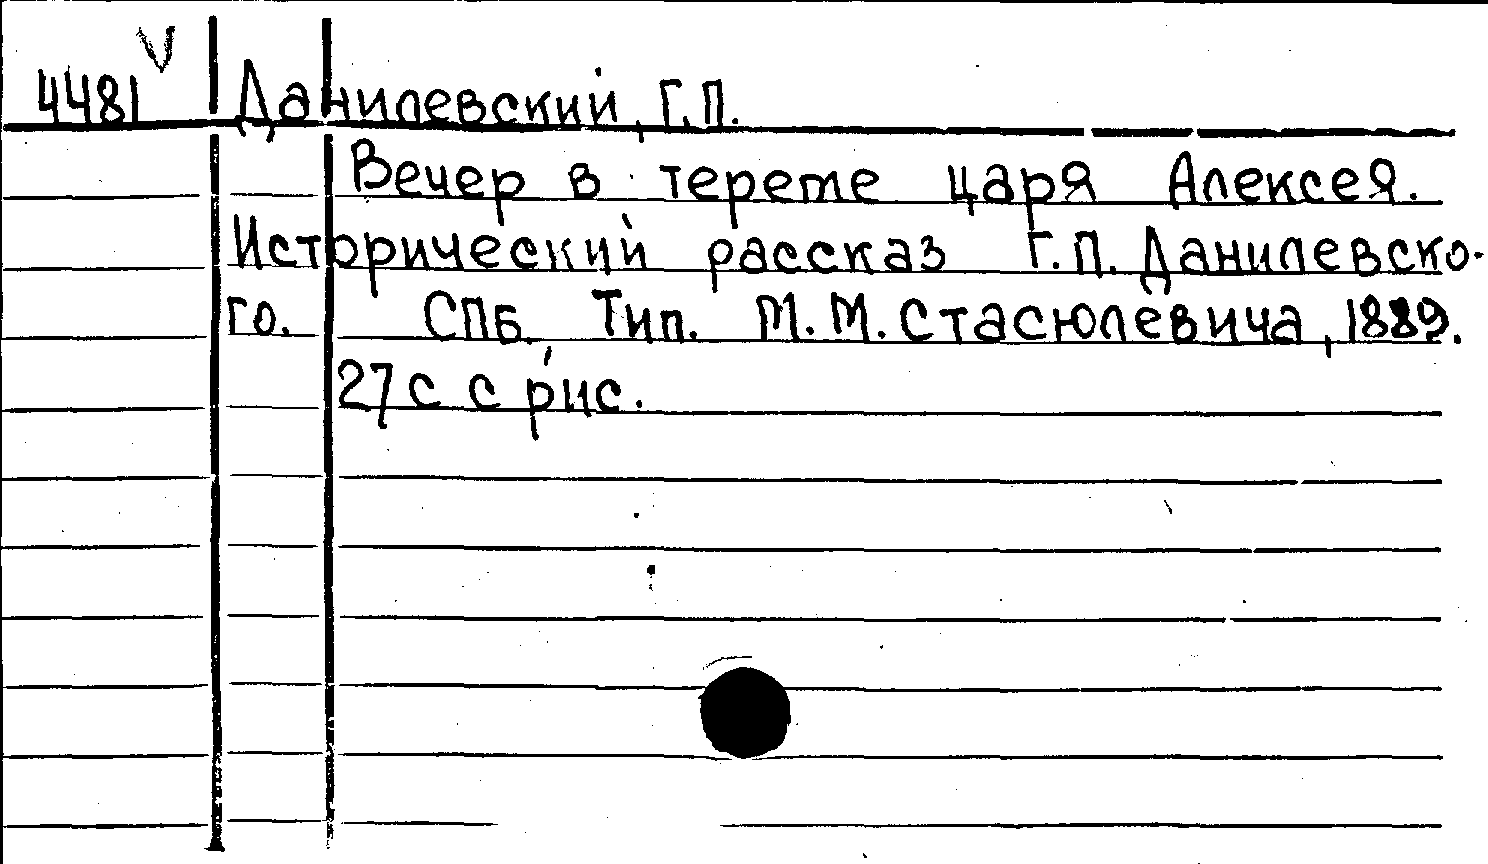 V
4481 Данилевский, Г.П.
Вечер в тереме царя Алексея.
Исторический рассказ Г.П. Данилевско-
го. СПб, Тип. М.М.Стасюлевича, 1889.
27 с с рис.